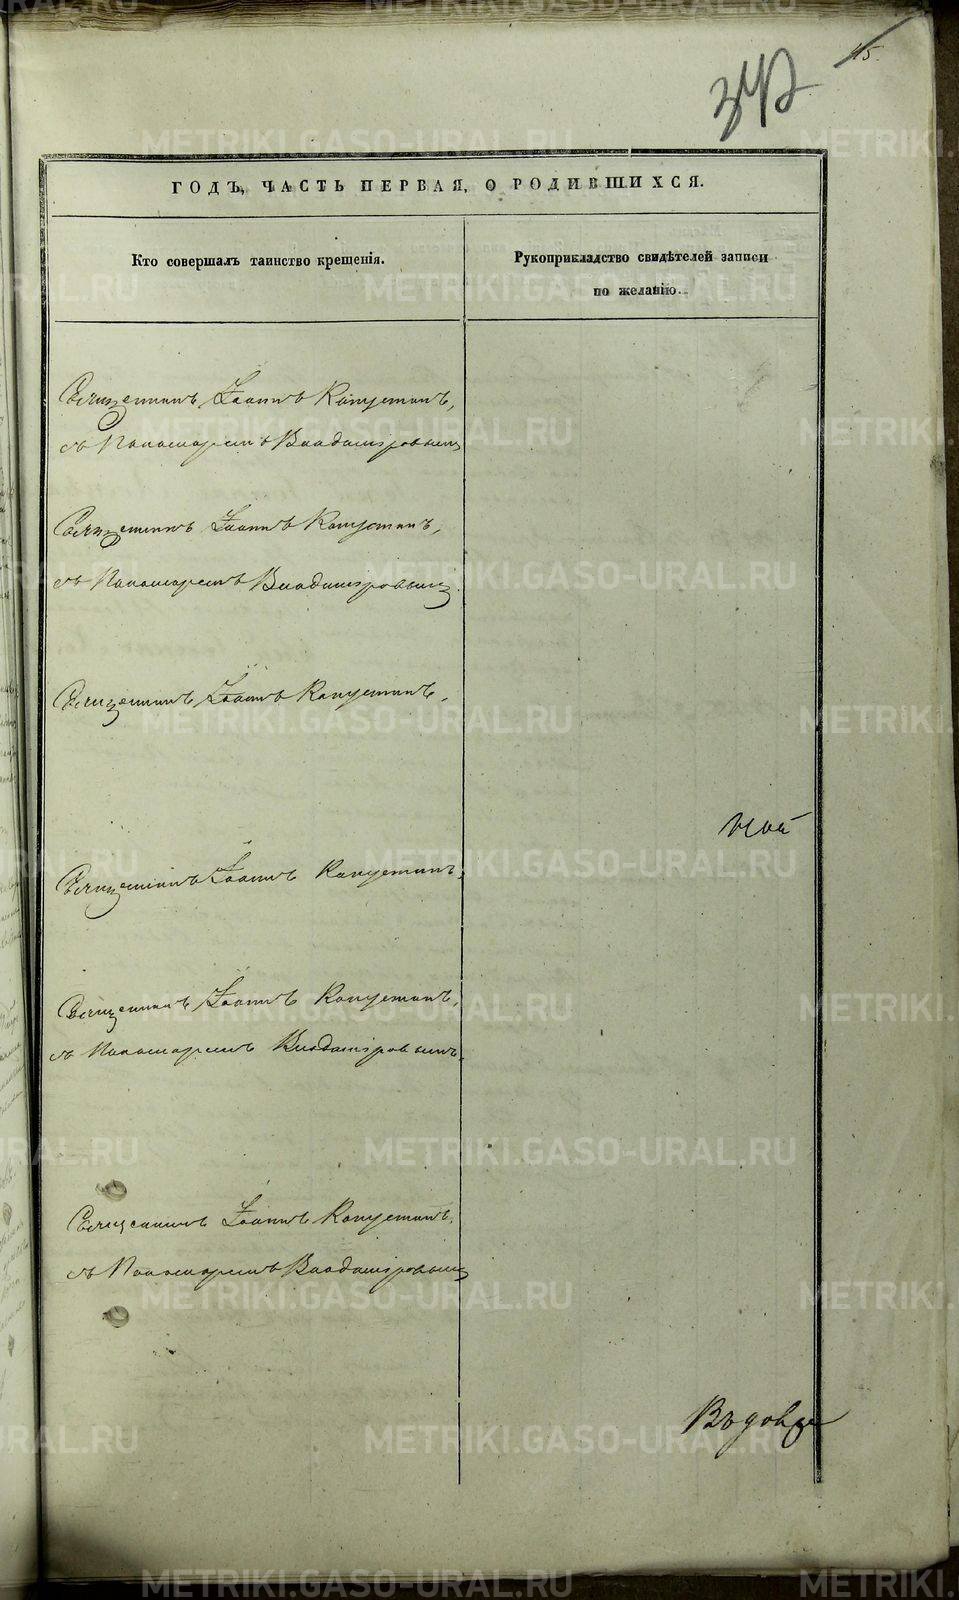 45.
342
ГОДЪ, ЧАСТЬ ПЕРВАЯ, О РОДИВШИХСЯ.
Кто совершалъ таинство крещенія.
Рукоприкладство свидѣтелей записи
по желанію.
Священникъ Іоаннъ Капустинъ,
съ Пономаремъ Владиміровымъ
Священникъ Іоаннъ Капустинъ,
съ Пономаремъ Владиміровымъ
Священникъ Іоаннъ Капустинъ,
Священникъ Іоаннъ Капустинъ,
Священникъ Іоаннъ Капустинъ,
съ Пономаремъ Владиміровымъ.
Священникъ Іоаннъ Капустинъ,
съ Пономаремъ Владиміровымъ
METRIKI.GASO-URAL.RU